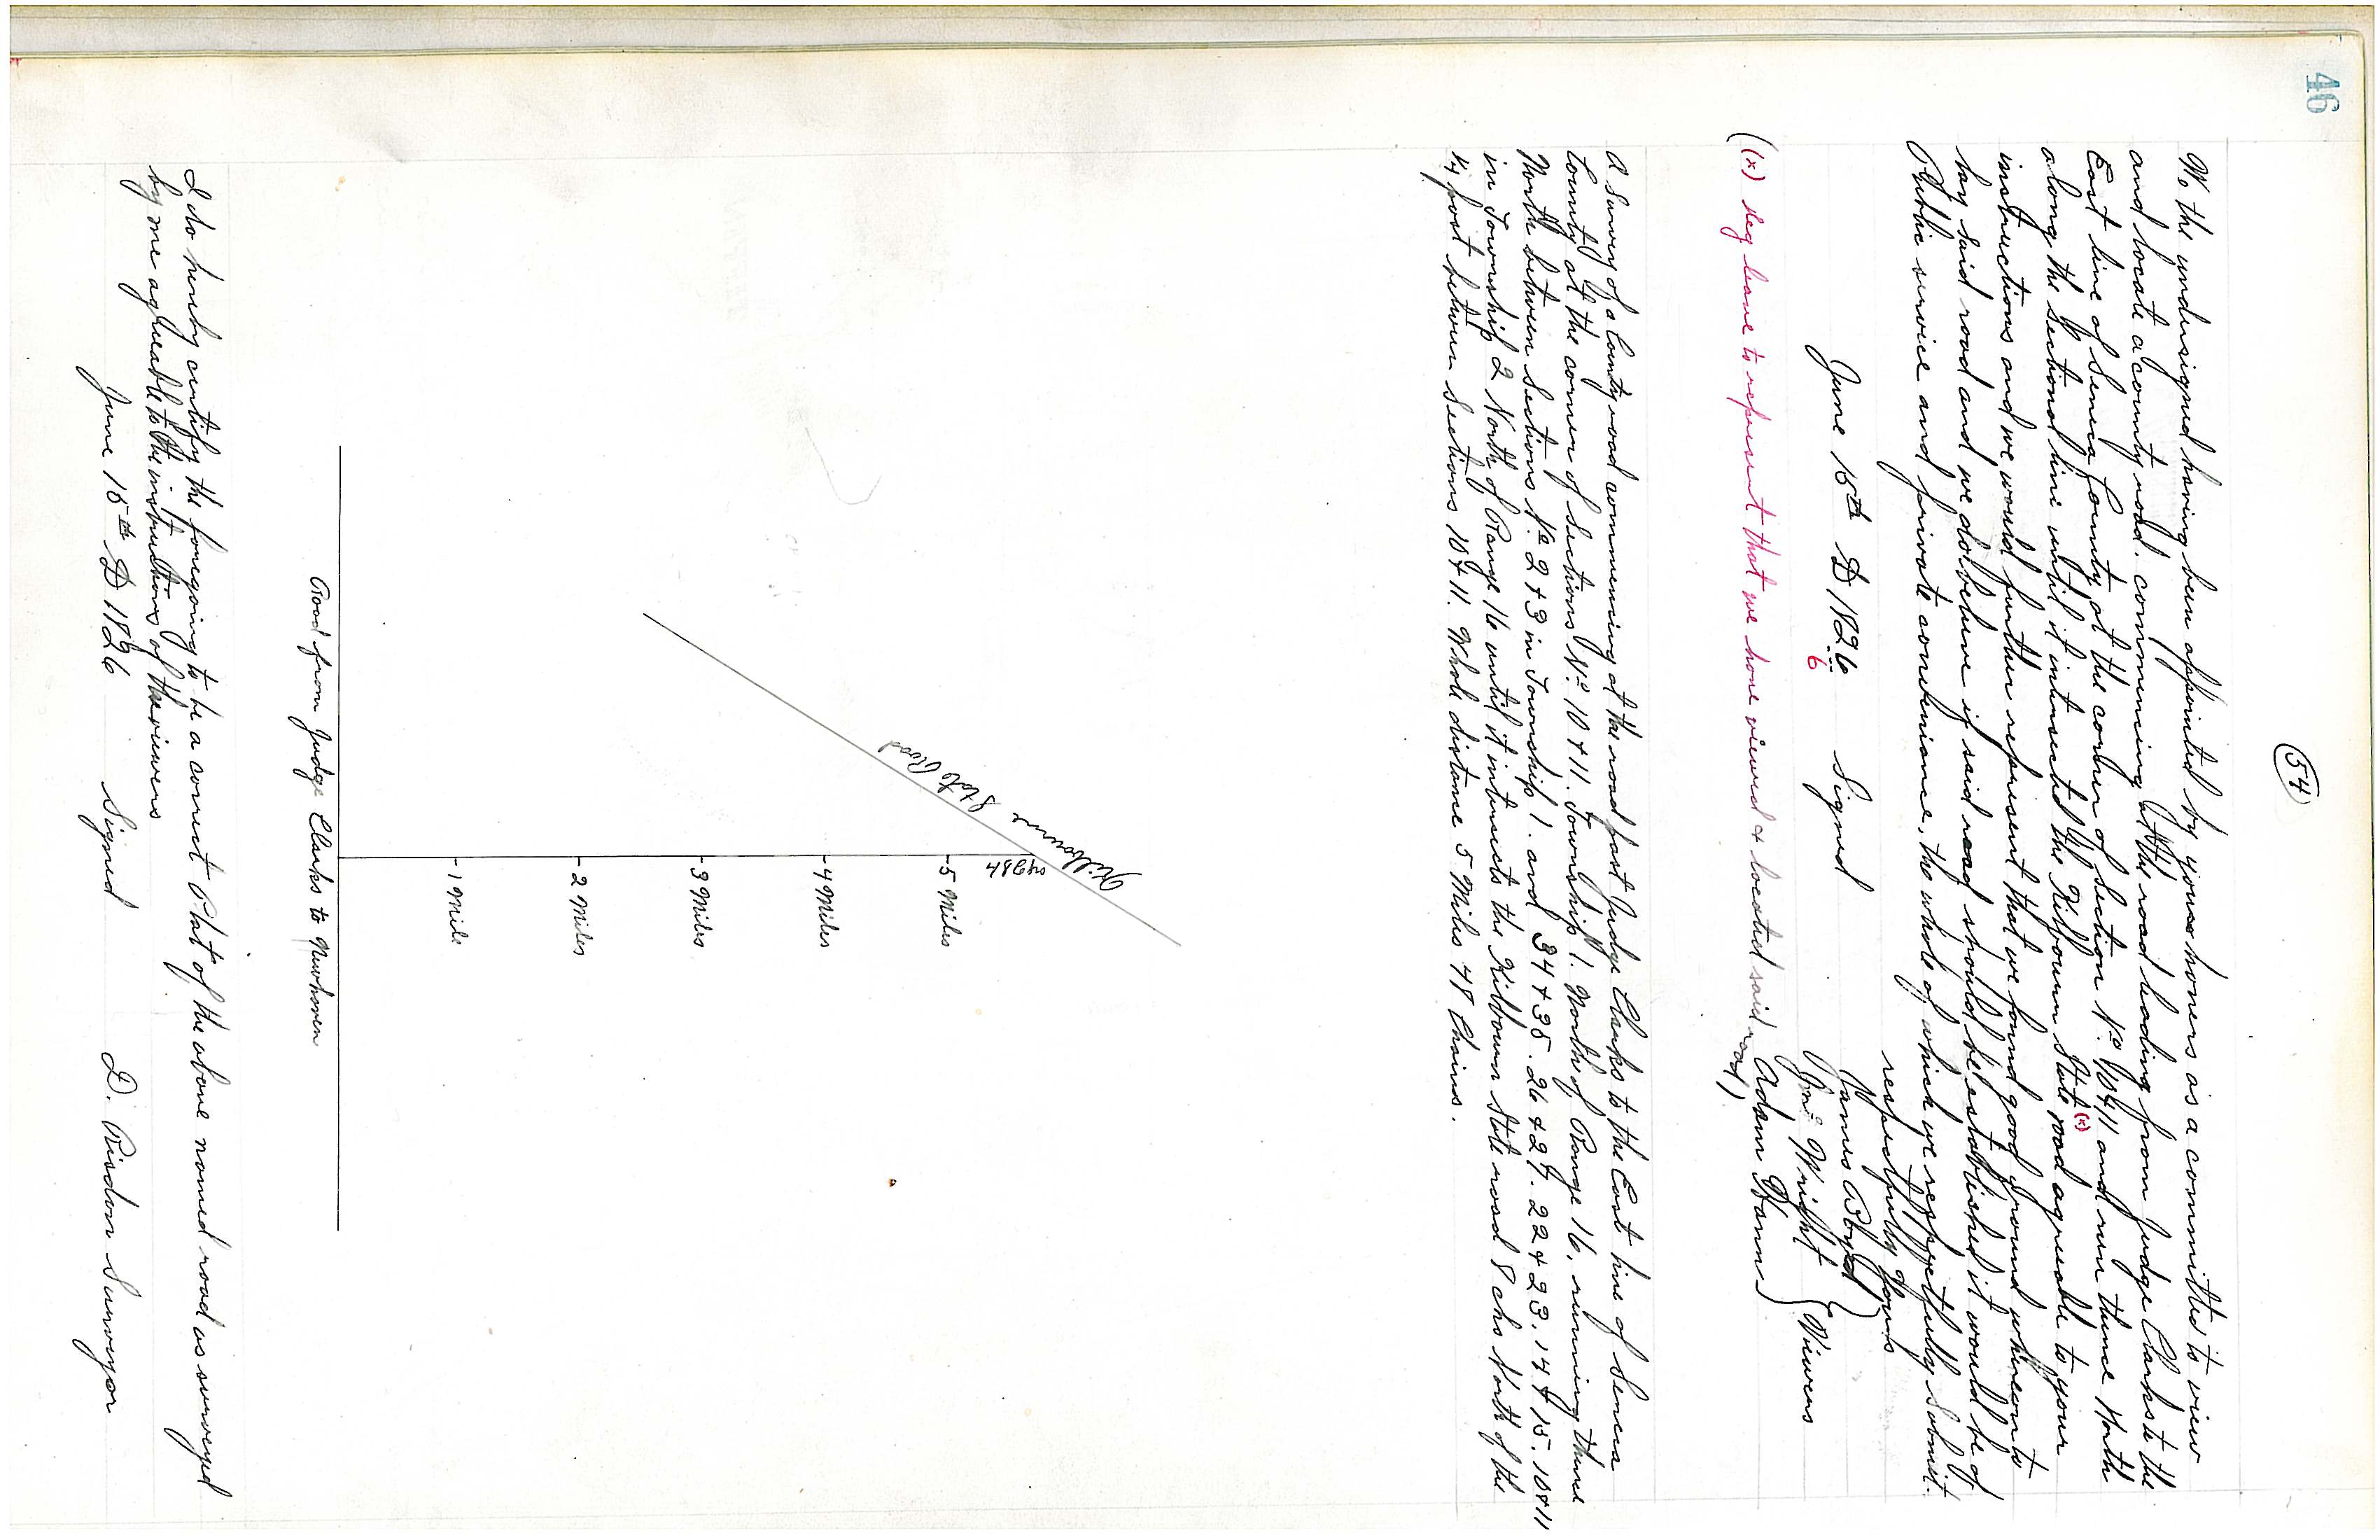 46
(54)
We the undersigned having been appointed by your honers as a committe to view
and locate a county road. commencing at the road leading from Judge Clarks to the
East line of Seneca County at the corner of Section No. 10 & 11 and run thence North
along the Sectional line until it intersects the Kilbourn State (x) road agreeable to your
instructions and we would further represent that we found good ground whereon to
lay said road and we do believe if said road should be established it would be of
Public service and private convenience, the whole of which we respectfully Submit.
respectfully Yours
June 15th D 1826 Signed
6
James Boyd
Jms Wright } Viewers
Adam Hamm
((x) beg leave to represent that we have viewed & located said road)
A Survey of a County road commencing at the road past Judge Clarks to the East line of Seneca
County at the corner of Sections No. 10 & 11. Township 1. North of Range 16, running thence
North between Sections No. 2 & 3 in Township 1. and 34 & 35. 26 & 27. 22 & 23. 14 & 15. 10 & 11
in Township 2 North of Range 16 until it intersects the Kilbourn State road 8 chs North of the
1/4 post between Sections 10 & 11. Whole distance 5 Miles 48 Chains.
Kilbourne State Road
48 chs
5 Miles
4 Miles
3 Miles
2 Miles
1 Mile
Road from Judge Clarks to Newhaven
I do hereby certify the foregoing to be a correct Plat of the above named road as surveyed
by me agreeable to the instructions of the viewers
June 15th D 1826 Signed D. Risdon Surveyor